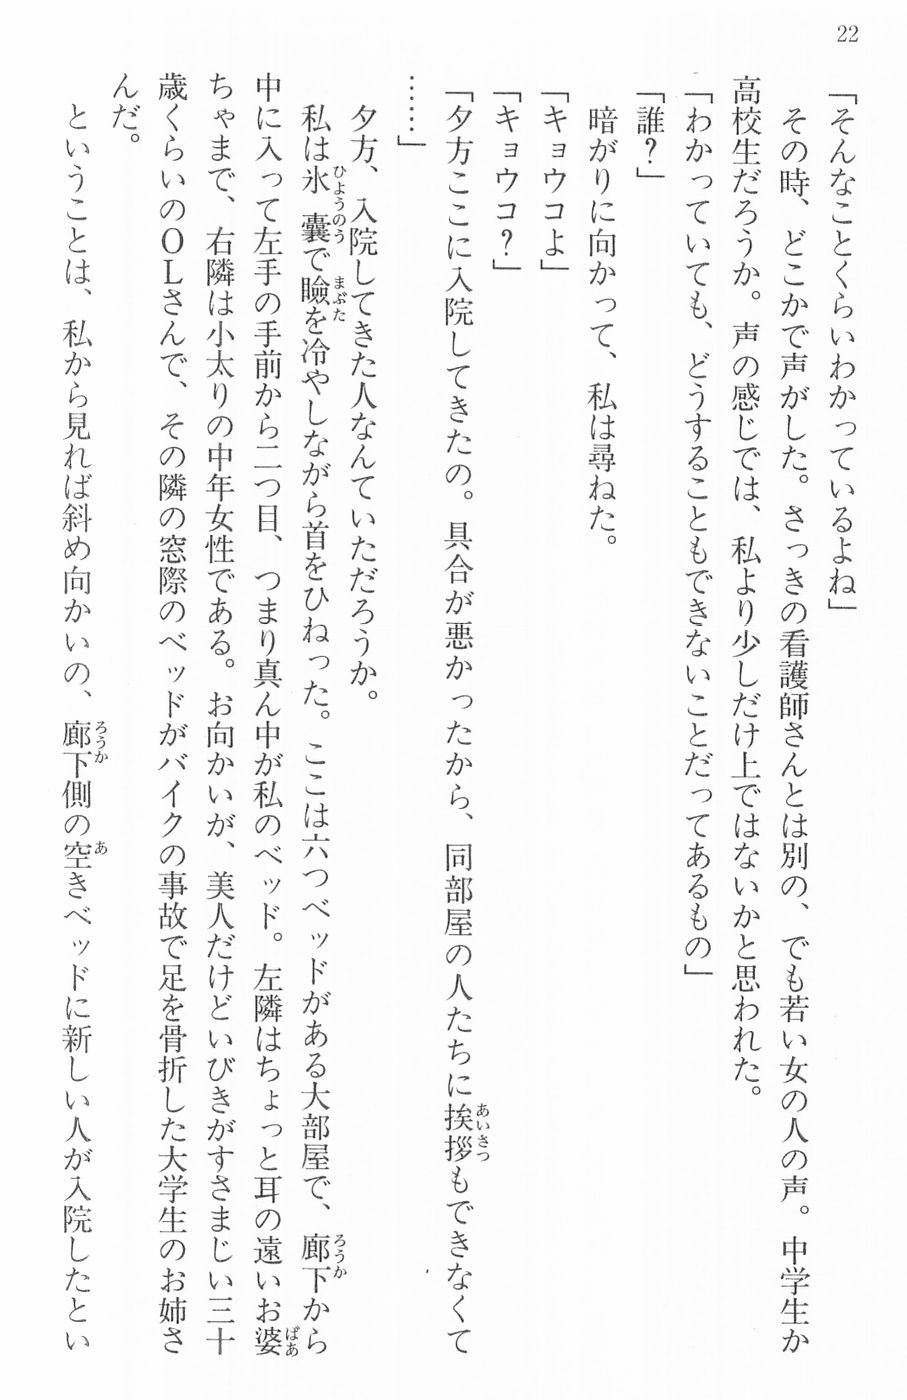 22
「そんなことくらいわかっているよね」
その時、どこかで声がした。さっきの看護師さんとは別の、でも若い女の人の声。中学生か
高校生だろうか。声の感じでは、私より少しだけ上ではないかと思われた。
「わかっていても、どうすることもできないことだってあるもの」
「誰？」
暗がりに向かって、私は尋ねた。
「キョウコよ」
「キョウコ？」
「夕方ここに入院してきたの。具合が悪かったから、同部屋の人たちに挨拶もできなくて
……」
夕方、入院してきた人なんていただろうか。
私は氷嚢で瞼を冷やしながら首をひねった。ここは六つベッドがある大部屋で、廊下から
中に入って左手の手前から二つ目、つまり真ん中が私のベッド。左隣はちょっと耳の遠いお婆
ちゃまで、右隣は小太りの中年女性である。お向かいが、美人だけどいびきがすさまじい三十
歳くらいのＯＬさんで、その隣の窓際のベッドがバイクの事故で足を骨折した大学生のお姉さ
んだ。
ということは、私から見れば斜め向かいの、廊下側の空きベッドに新しい人が入院したとい